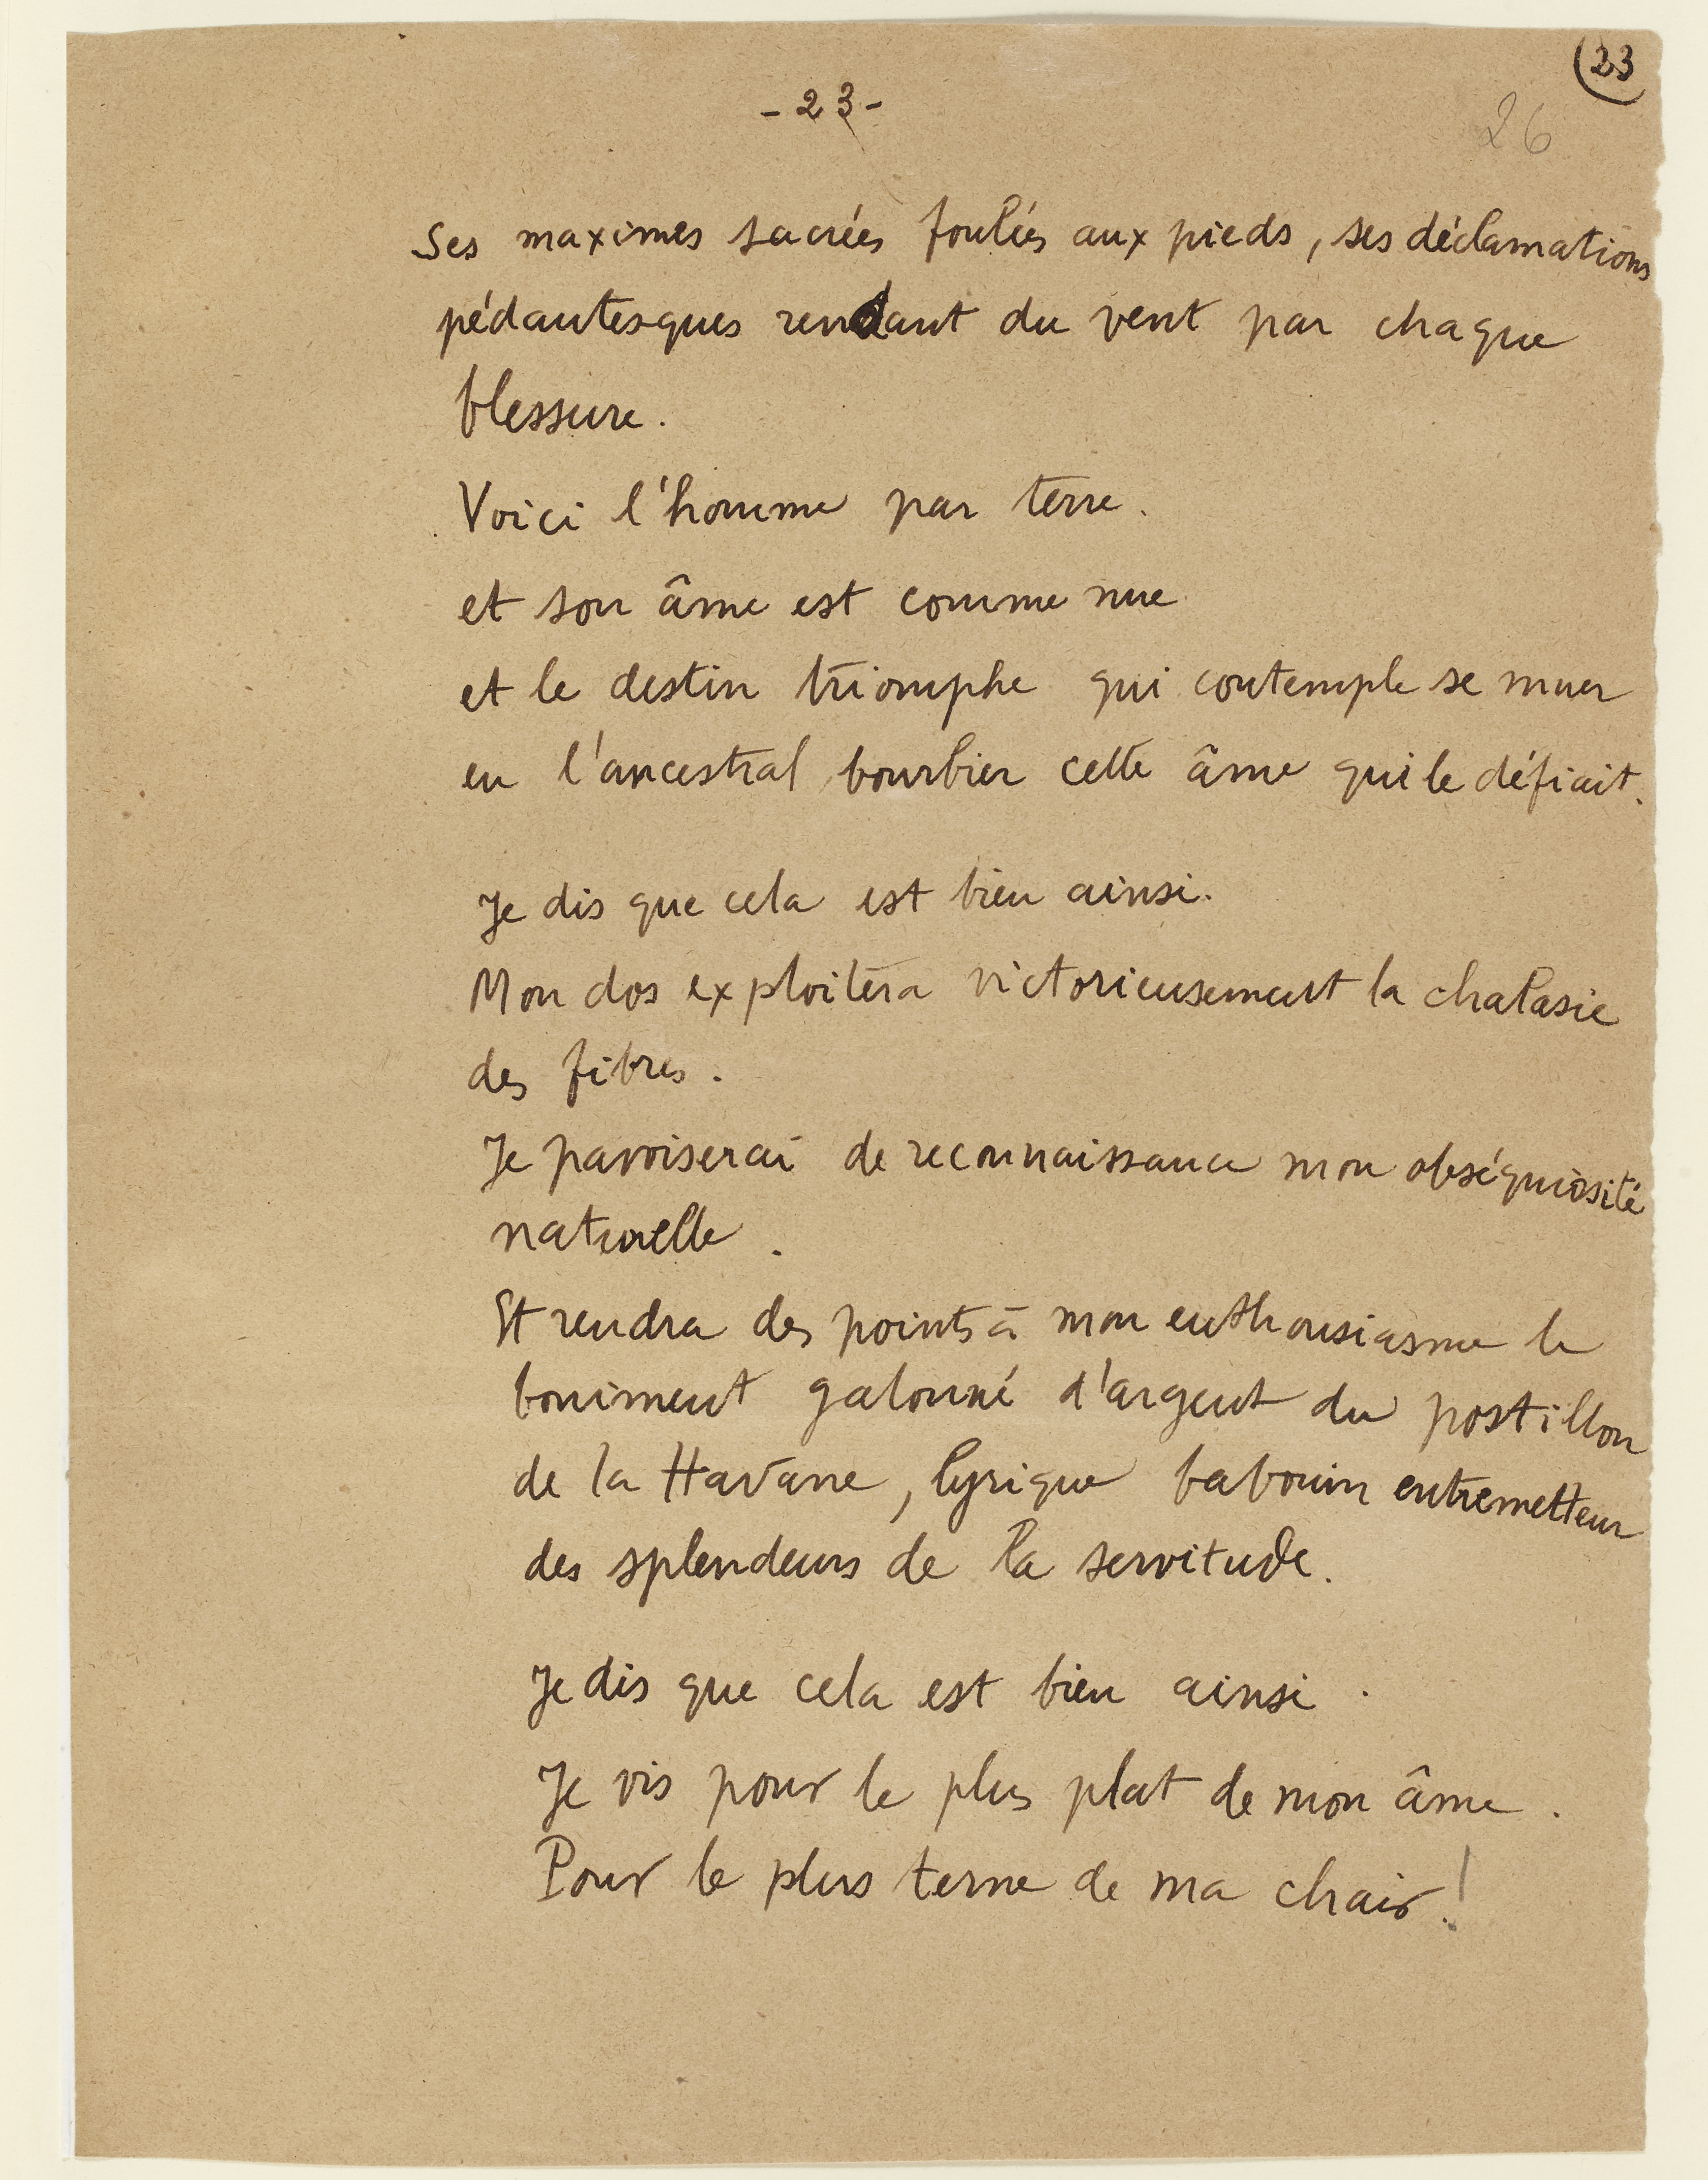 23
- 23 -
26
Ses maximes sacrées foulées aux pieds, ses déclamations
pédantesques rendant du vent par chaque
blessure.
Voici l'homme par terre.
et son âme est comme nue
et le destin triomphe qui contemple se muer
en l'ancestral bourbier cette âme qui le défiait.
Je dis que cela est bien ainsi.
Mon dos exploitera victorieusement la chalasie
des fibres.
Je pavoiserai de reconnaissance mon obséquiosité
naturelle.
Et rendra des points à mon enthousiasme le
boniment galonné d'argent du postillon
de la Havane, lyrique babouin entremetteur
des splendeurs de la servitude.
Je dis que cela est bien ainsi.
Je vis pour le plus plat de mon âme.
Pour le plus terne de ma chair !